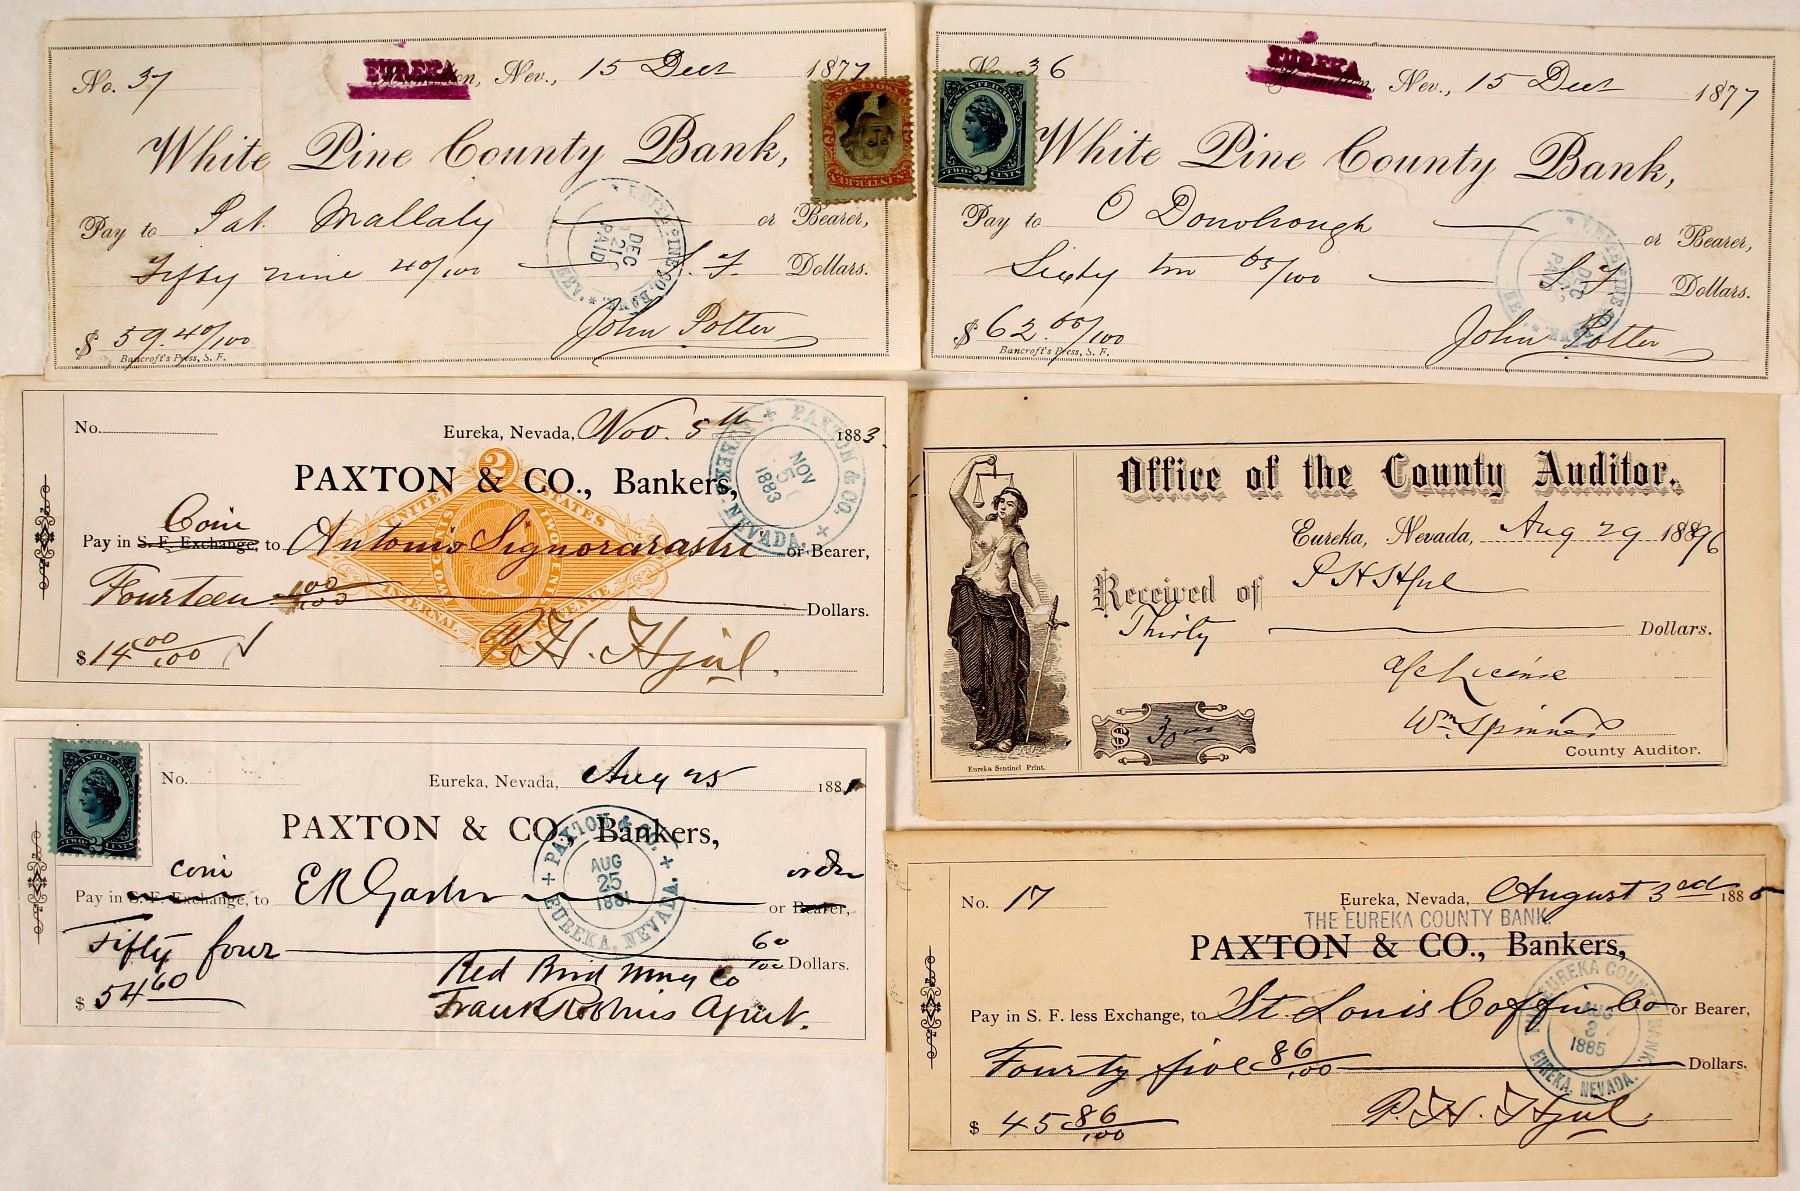 No. 37
EUREKA
Nev., 15 Decr 1877
White Pine County Bank,
Pay to Pat. Mallaly or Bearer,
Fifty nine 40/100 S.F. Dollars.
$ 59.40/100
John Potter
Bancroft's Press, S. F.
DEC
21
PAID
No. 36
EUREKA
Nev., 15 Decr 1877
TWO 2 CENTS
White Pine County Bank,
Pay to O Donohough or Bearer,
Sixty two 65/100 S.F. Dollars.
$ 62.65/100
John Potter
Bancroft's Press, S. F.
DEC
PAID
No.
Eureka, Nevada, Nov. 5th 1883.
PAXTON & CO., Bankers,
Coin
Pay in S. F. Exchange, to Antonio or Bearer,
Fourteen 00/100 Dollars.
$ 14 00/100
P. H. Hjul.
UNITED STATES
INTERNAL REVENUE
2
TWO CENTS
PAXTON & CO.
NOV
5
1883
EUREKA, NEVADA.
Office of the County Auditor.
Eureka, Nevada, Aug 29 18896
Received of P H Hjul
Thirty Dollars.
License
Wm Spinner
County Auditor.
$ 30 00
Eureka Sentinel Print.
TWO 2 CENTS
No.
Eureka, Nevada, Aug 25 1881
PAXTON & CO., Bankers,
coin order
Pay in S. F. Exchange, to E R or Bearer,
Fifty four 60/100 Dollars.
$ 54 60
Red Bird Mng Co
Frank Robbins Agent.
PAXTON & CO.
AUG
25
1881
EUREKA, NEVADA.
No. 17
Eureka, Nevada, August 3rd 1885
THE EUREKA COUNTY BANK,
PAXTON & CO., Bankers,
Pay in S. F. less Exchange, to St. Louis Coffin Co or Bearer,
Fourty five 86/100 Dollars.
$ 45 86/100
P. H. Hjul
EUREKA COUNTY BANK.
AUG
3
1885
EUREKA, NEVADA.